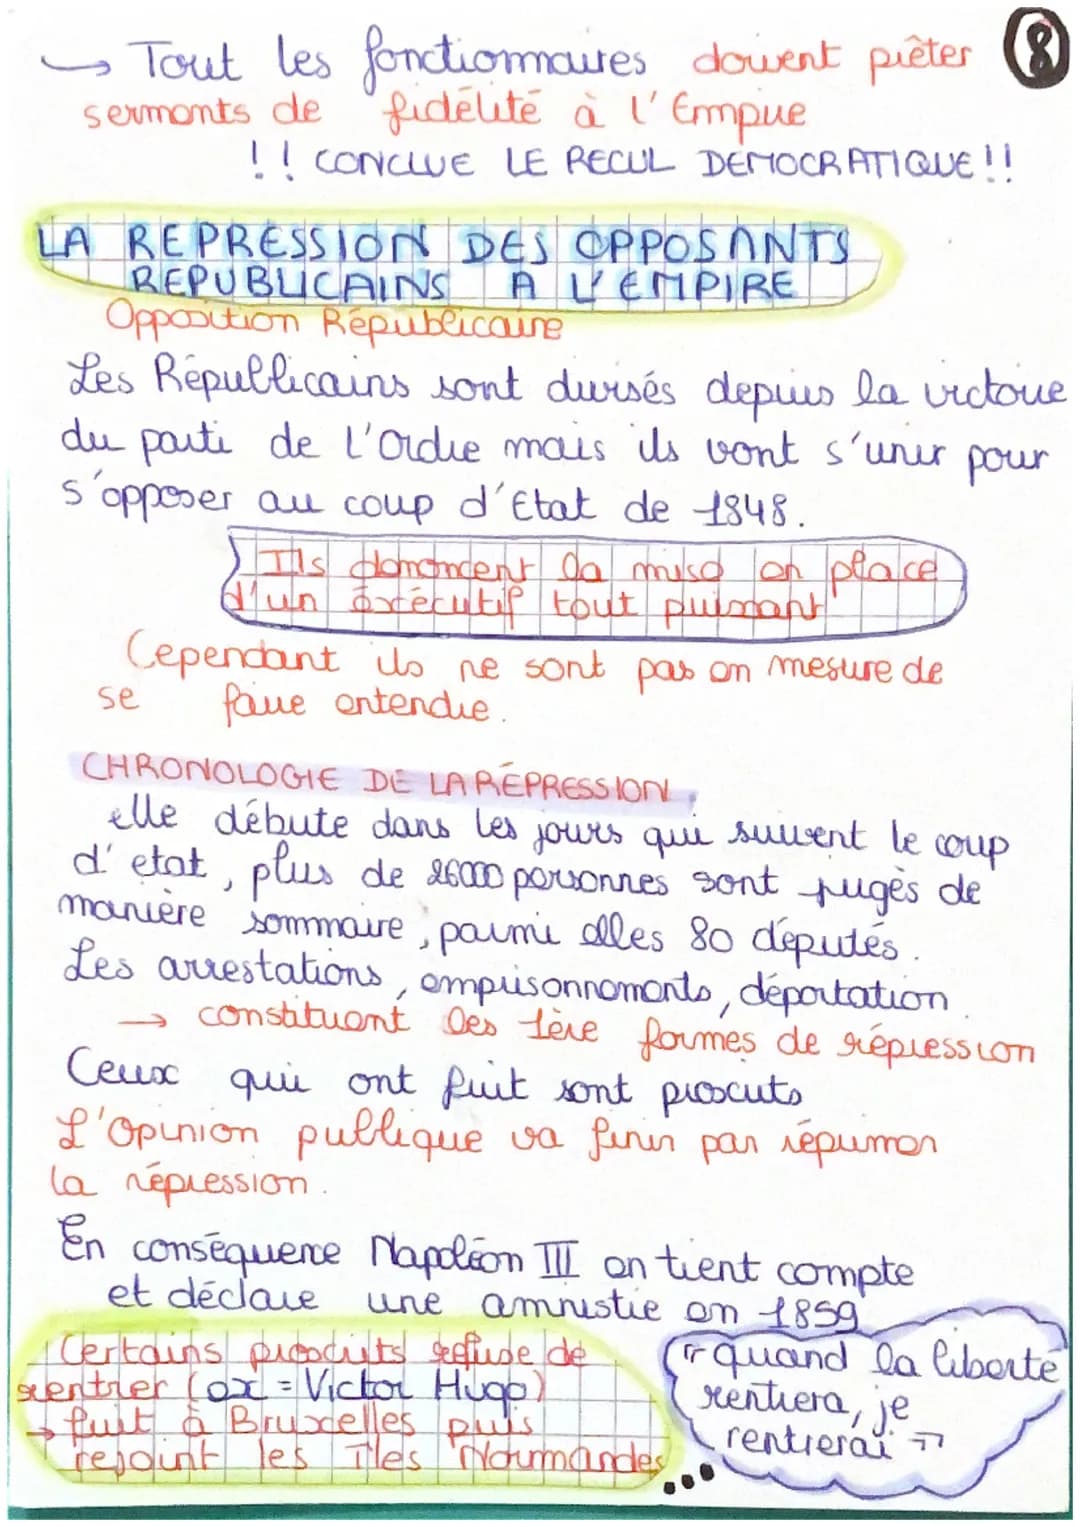 → Tout les fonctionnaires doivent prêter 8
serments de fidélité à l'Empire
!! CONCLUE LE RECUL DEMOCRATIQUE !!
LA REPRESSION DES OPPOSANTS
REPUBLICAINS A L'EMPIRE
Opposition Républicaire
Les Républicains sont divisés depuis la victoire
du parti de l'Ordre mais ils vont s'unir pour
s'opposer au coup d'Etat de 1848.
Ils dénoncent la mise en place
d'un éxécutif tout puissant
Cependant ils ne sont pas en mesure de
se faire entendre.
CHRONOLOGIE DE LA RÉPRESSION
elle débute dans les jours qui suivent le coup
d'etat, plus de 26000 personnes sont jugés de
manière sommaire, parmi elles 80 députés.
Les arrestations, emprisonnements, déportation
→ constituent les 1ère formes de répression
Ceux qui ont fuit sont proscrits
L'Opinion publique va finir par réprimer
la répression.
En conséquene Napoléon III en tient compte
et déclare une amnistie en 1859
Certains proscrits refuse de
rentrer (ex = Victor Hugo)
→ fuit à Bruxelles puis
rejoint les îles Normandes
"quand la liberté
rentrera, je
rentrerai"